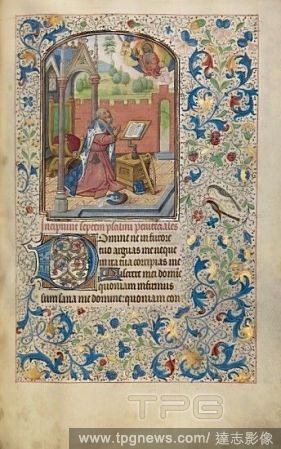 Incipiunt septem psalmi penitetiales
Domine ne in furore
tuo arguas me neque
in ira tua corripias me
Miserere mei domine
quoniam infirmus
sum sana me domine: quoniam con
TPG
www.tpgnews.com/達志影像